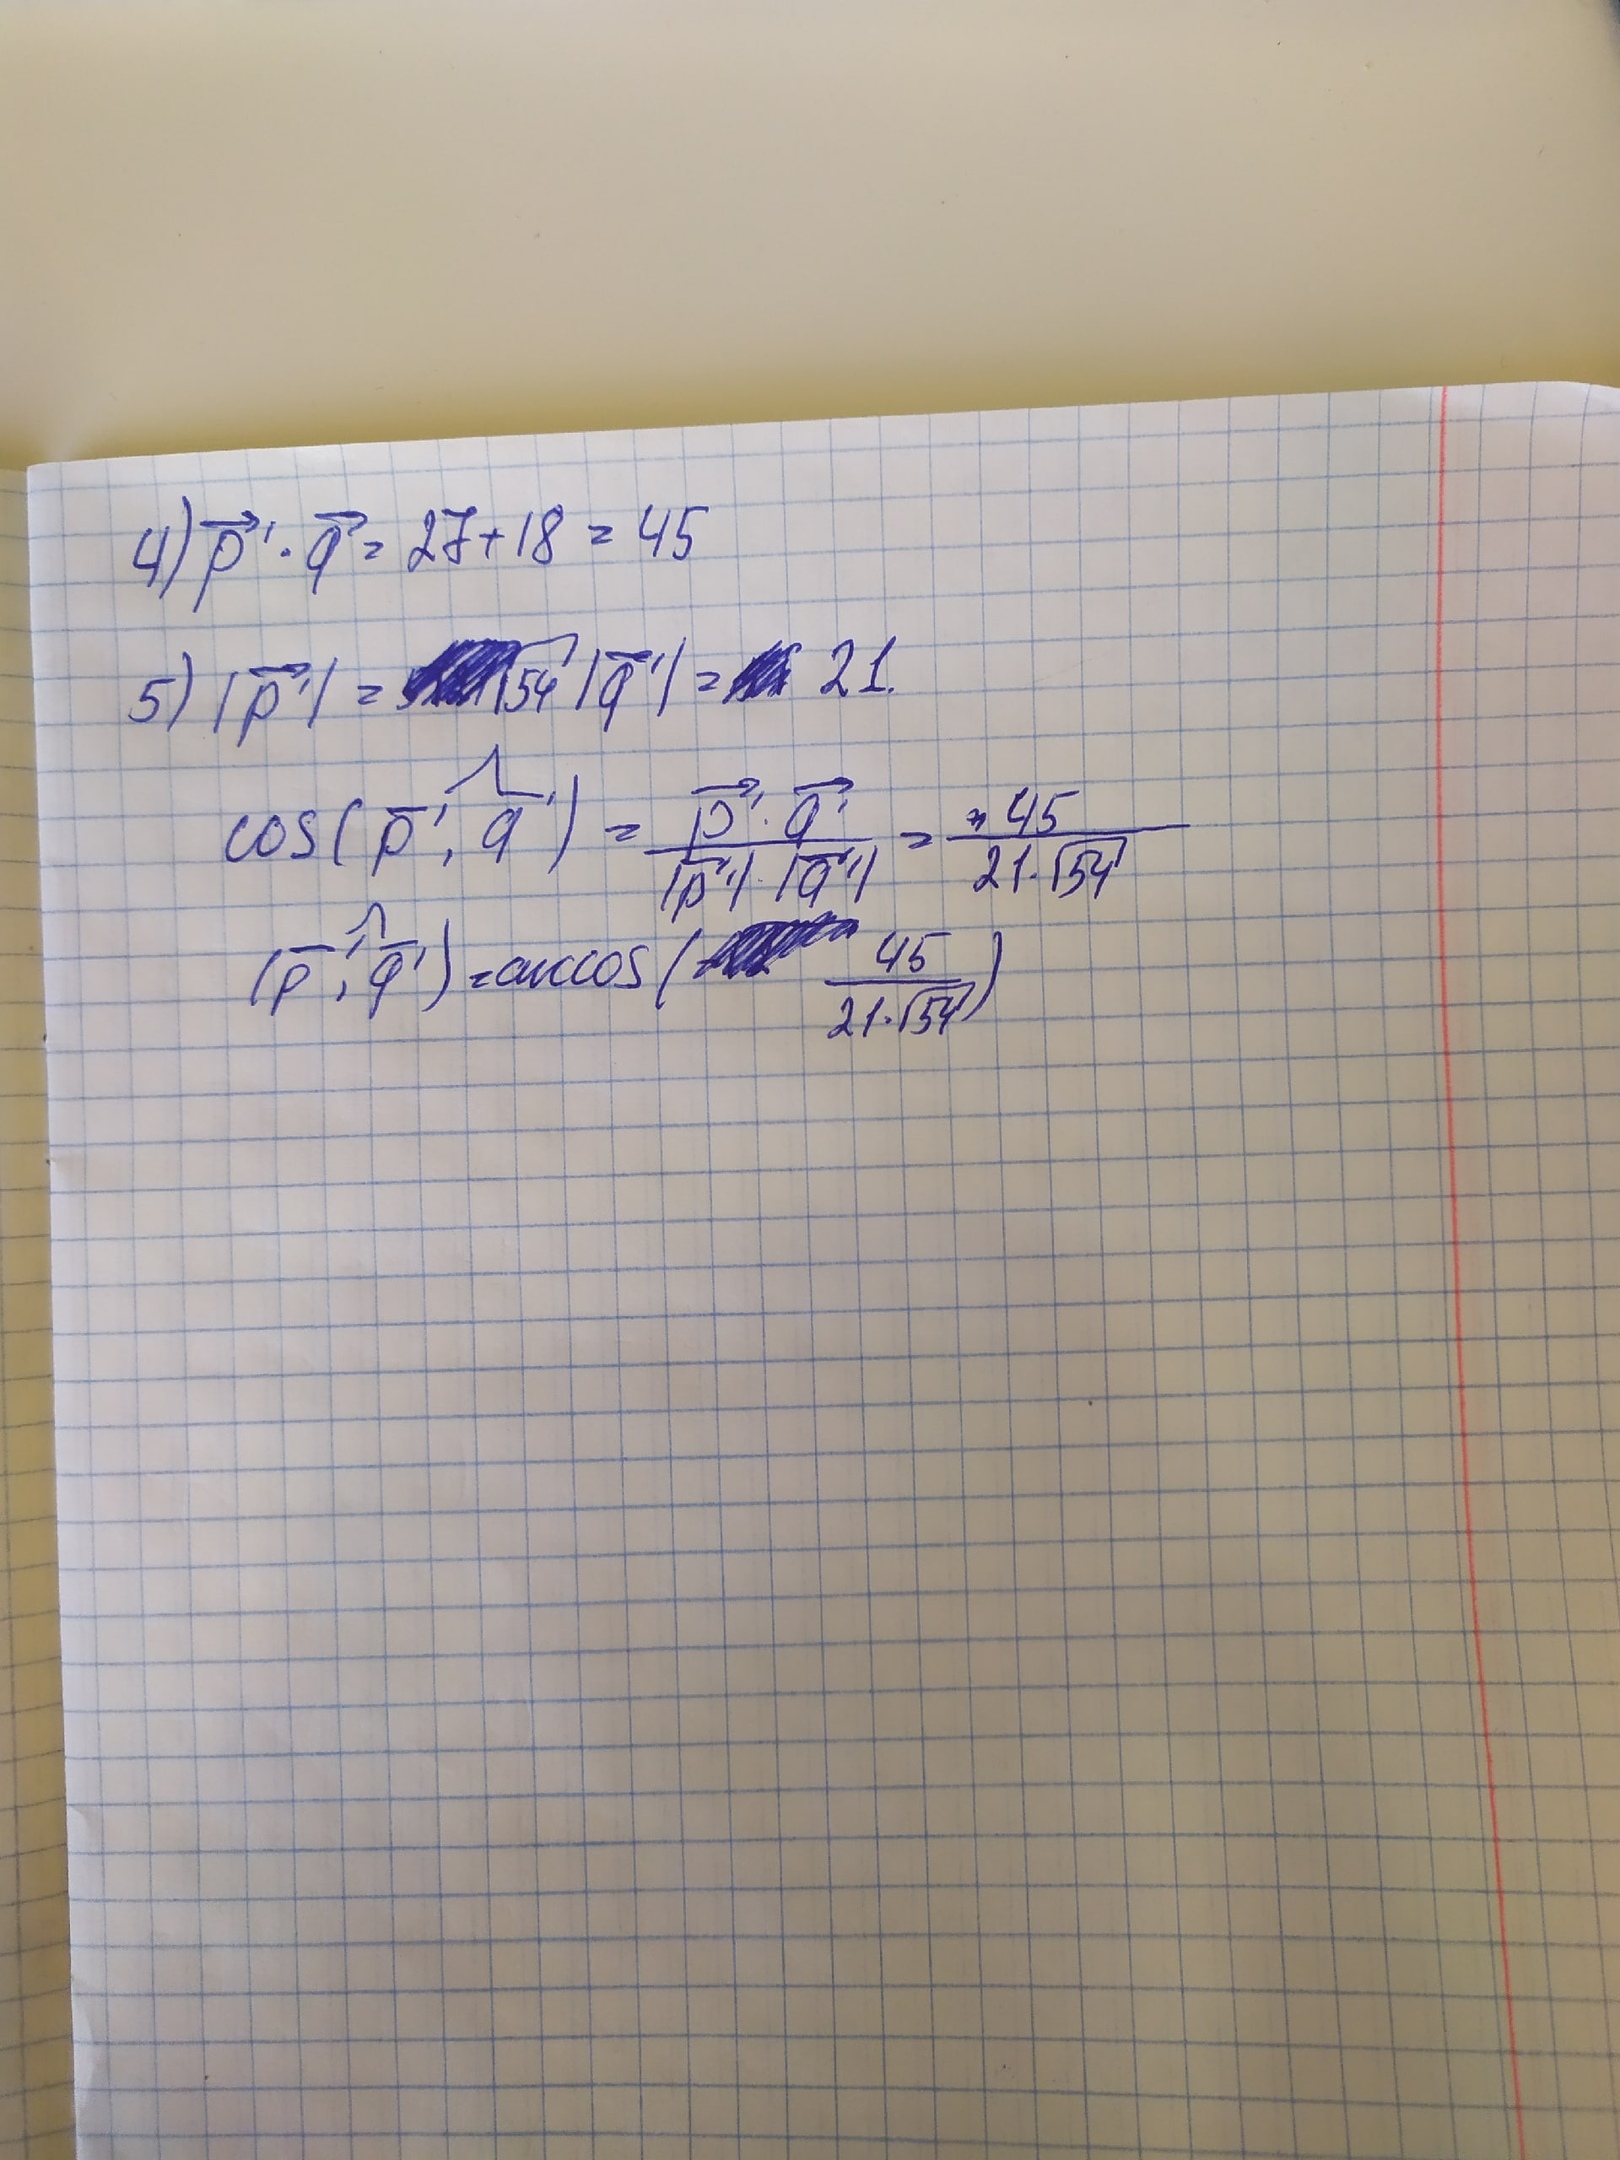 4) p⃗' · q⃗ = 27+18 = 45
5) |p⃗'| = √54 |q⃗'| = 21.
cos(p̅', q̅') = (p⃗' · q⃗') / (|p̅'| · |q̅'|) = 45 / (21·√54)
(p̅', q̅') = arccos( 45 / (21·√54) )